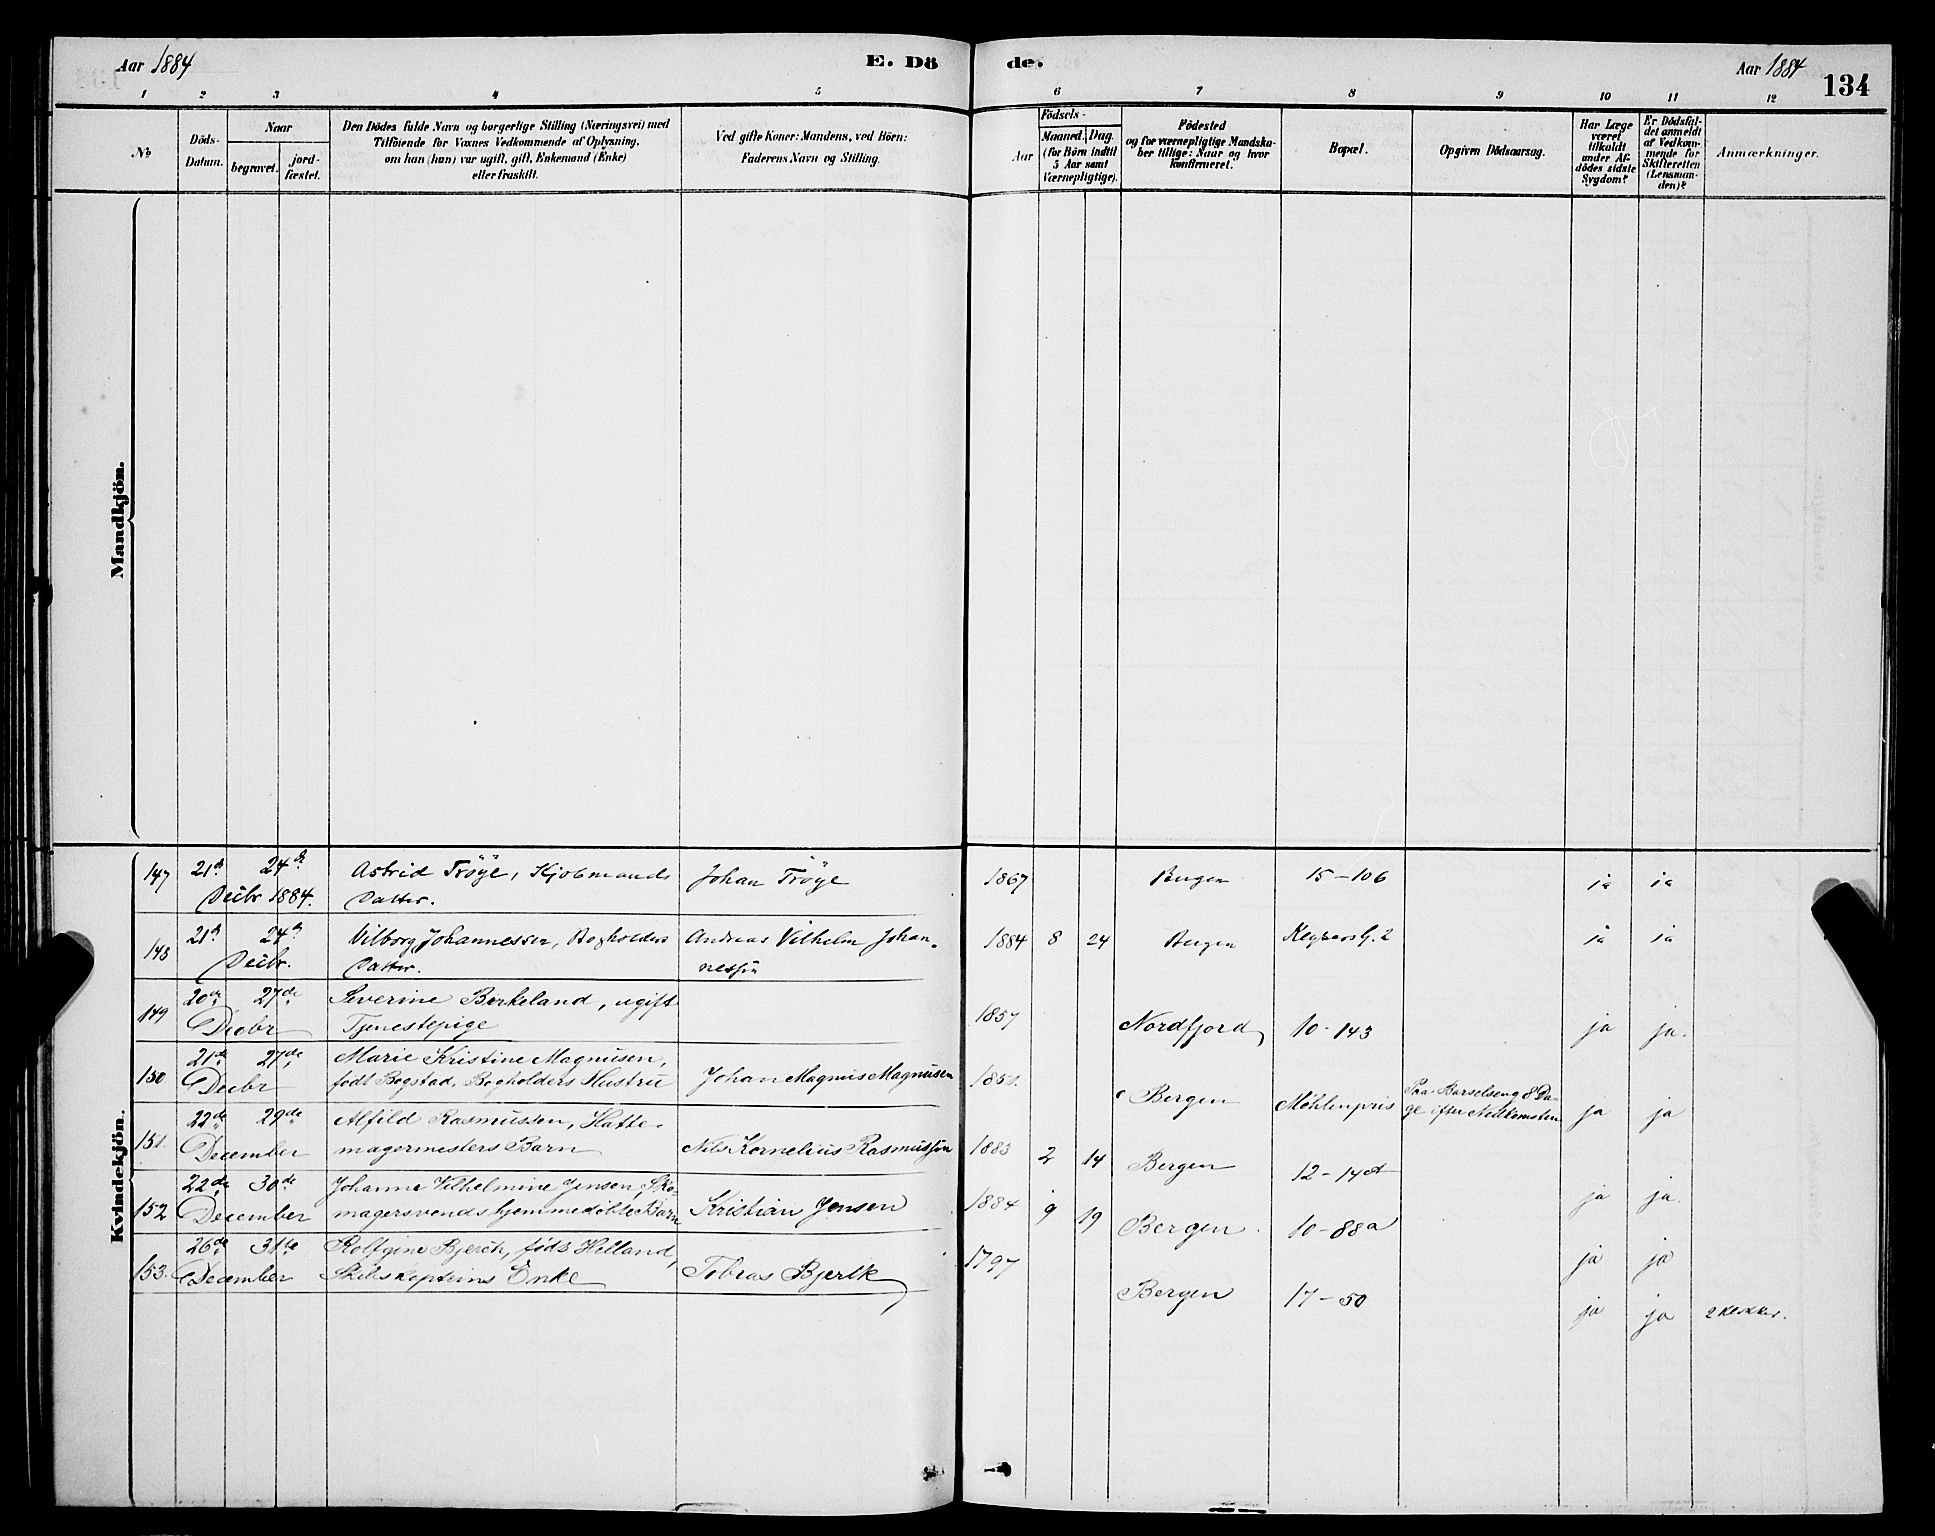 Aar 1884
E. Dö
de.
Aar 1884
134
1 2 3 4 5 6 7 8 9 10 11 12
No
Döds-
Datum.
Naar
begravet.
jord-
fæstet.
Den Dödes fulde Navn og borgerlige Stilling (Næringsvei) med
Tilföiende for Voxnes Vedkommende af Oplysning,
om hun (han) var ugift, gift, Enkemand (Enke)
eller fraskilt.
Ved gifte Koner: Mandens, ved Börn:
Faderens Navn og Stilling.
Födsels-
Aar
Maaned. Dag.
(for Börn indtil
5 Aar samt
Værnepligtige).
Födested
og for værnepligtige Mandska-
ber tillige: Naar og hvor
konfirmeret.
Bopæl.
Opgiven Dödsaarsag.
Har Læge
været
tilkaldt
under Af-
dödes sidste
Sygdom?
Er Dödsfal-
det anmeldt
af Vedkom-
mende for
Skifteretten
(Lensman-
den)?
Anmærkninger.
Mandkjön.
Kvindekjön.
147 21de 24de Astrid Tröye, Kjöbmands Johan Tröye 1867 Bergen 15-106 ja ja
Decbr 1884. Datter.
148 21de 24de Vilborg Johannessen, Bogholders Andreas Vilhelm Johan- 1884 8 24 Bergen Keysersg. 2 ja ja
Decbr. Datter. nessen
149 20de 27de Severine Berkeland, ugift 1857 Nordfjord 10-143 ja ja.
Decbr Tjenestepige
150 21de 27de Marie Kristine Magnusen,
Decbr födt Bogstad, Bogholders Hustru Johan Magnus Magnusen 1851. Bergen Möhlenpris Paa Barselseng 8 Da-
ge efter Nedkomsten ja ja
151. 22de 29de Alfild Rasmussen, Hatte-
December magermesters Barn Nils Kornelius Rasmussen 1883 2 14 Bergen 12-14a ja ja.
152 22de 30de Johanne Vilhelmine Jensen, Sko-
December magersvends hjemmedöbte Barn Kristian Jensen 1884 9 19 Bergen 10-88a ja ja
153. 26de 31te Rolfgine Bjerck, föds Helland,
December Skibskapteins Enke Tobias Bjerck 1797 Bergen 17-50 ja ja 2 Klokker.